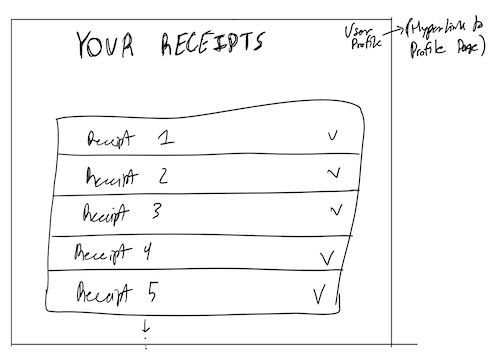 YOUR RECEIPTS
User Profile
(Hyperlink to Profile Page)
Receipt 1
Receipt 2
Receipt 3
Receipt 4
Receipt 5